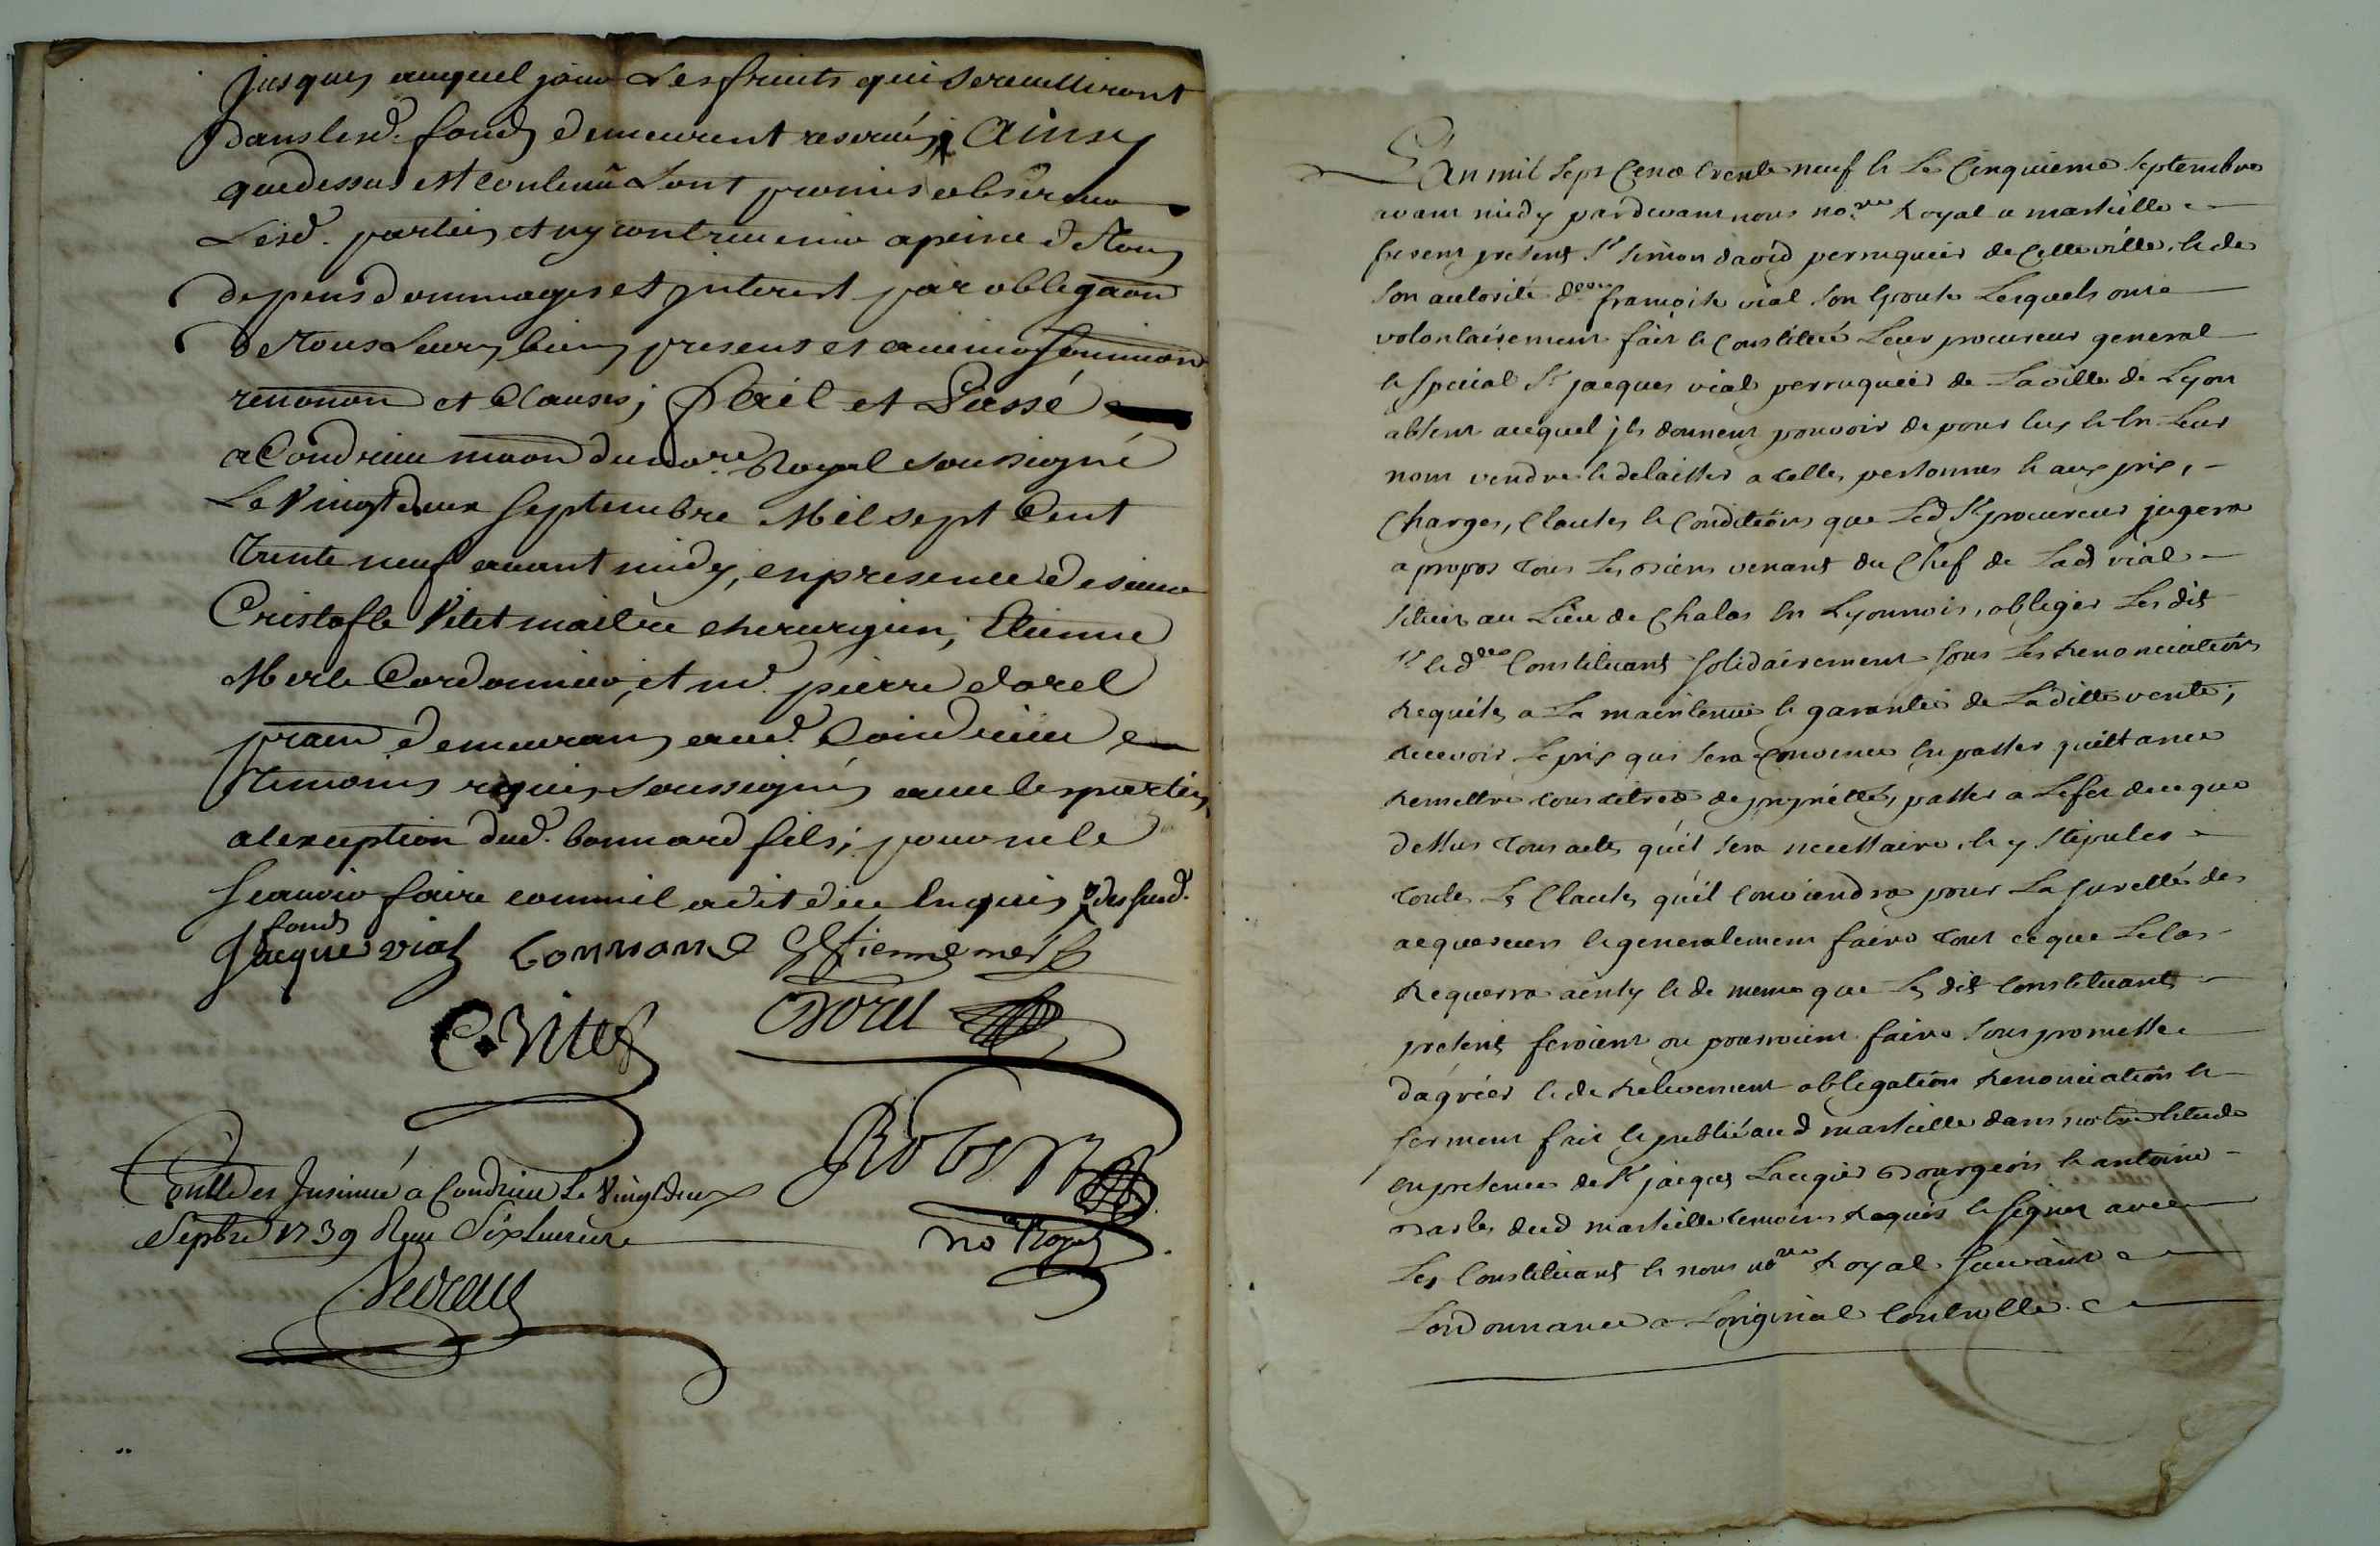 jusques auquel jour Les fruits qui sereuilliront
dans lesd. fonds demeurent reservés, Ainsy
que dessus est contenu L'ont promis observer
Lesd. parties et ny contrevenir a peine de tous
depens dommages et jnterest par obligaon
de tous Leurs biens presens et avenir soumions
renonon et clauses; fait et Passé
a Condrieu maon du nore. Royal soussigné
Le vingt deux septembre Mil sept Cent
trente neuf avant midy, en presence de sieur
Cristofle Vitet maitre cherurgien, Etienne
Merle Cordonnier, et md. pierre dorel
pratn demeurans aud. Condrieu
temoins requis soussignés avec les parties
a lexception dud. bonnard fils, pour ne le
scavoir faire comme il a dit de ce Enquis desusd.
fonds
Jacque vial bonnard Estienne merle
C. Vitet Dorel
Robert
no Royal
Conllé et Jnsinué a Condrieu Le Vingt deux
Septbre 1739 Reçu Six Livres
L'An mil sept Cent trente neuf & Le Cinquieme Septembre
avant midy pardevant nous nore Royal a marseille
furent presents Sr simon david perruquier de Cette ville, & de
son autorité dlle françoise vial son Epouse Lesquels ont
volontairement fait & Constitué Leur procureur general
& special Sr jacques vial perruquier de La ville de Lyon
absent auquel jls donnent pouvoir de pour Eux & En Leur
nom vendre & delaisser a telles personnes & aux prix,
Charges, Clauses & Conditions que Led Sr procureur jugera
a propos tous Les biens venants du Chef de Lad vial
situés au Lieu de Chalas En Lyonnois, obliger Les dits
Sr & dlle Constituants solidairement sous Les Renonciations
Requises a La maintenue & garantie de La ditte vente,
Recevoir Le prix qui sera Convenu En passer quittance
Remettre tous titres de proprietté, passer a L'efet de ce que
dessus tous actes qu'il sera necessaire, & y stipuler
toutes Les Clauses qu'il Conviendra pour La suretté des
acquereurs & generalement faire tout ce que Le Cas
Requerra ainsy & de meme que Les dits Constituants
presents feroient ou pourroient faire sous promesse
d'agréer & de Relevement obligation Renonciation &
serment fait & publié aud marseille dans notre Etude
en presence de Sr jacques Laugier Bourgeois & antoine
dud marseille temoins Requis & signés avec
Les Constituants & nous nore Royal suivant
L'ordonnance a L'original Controllé